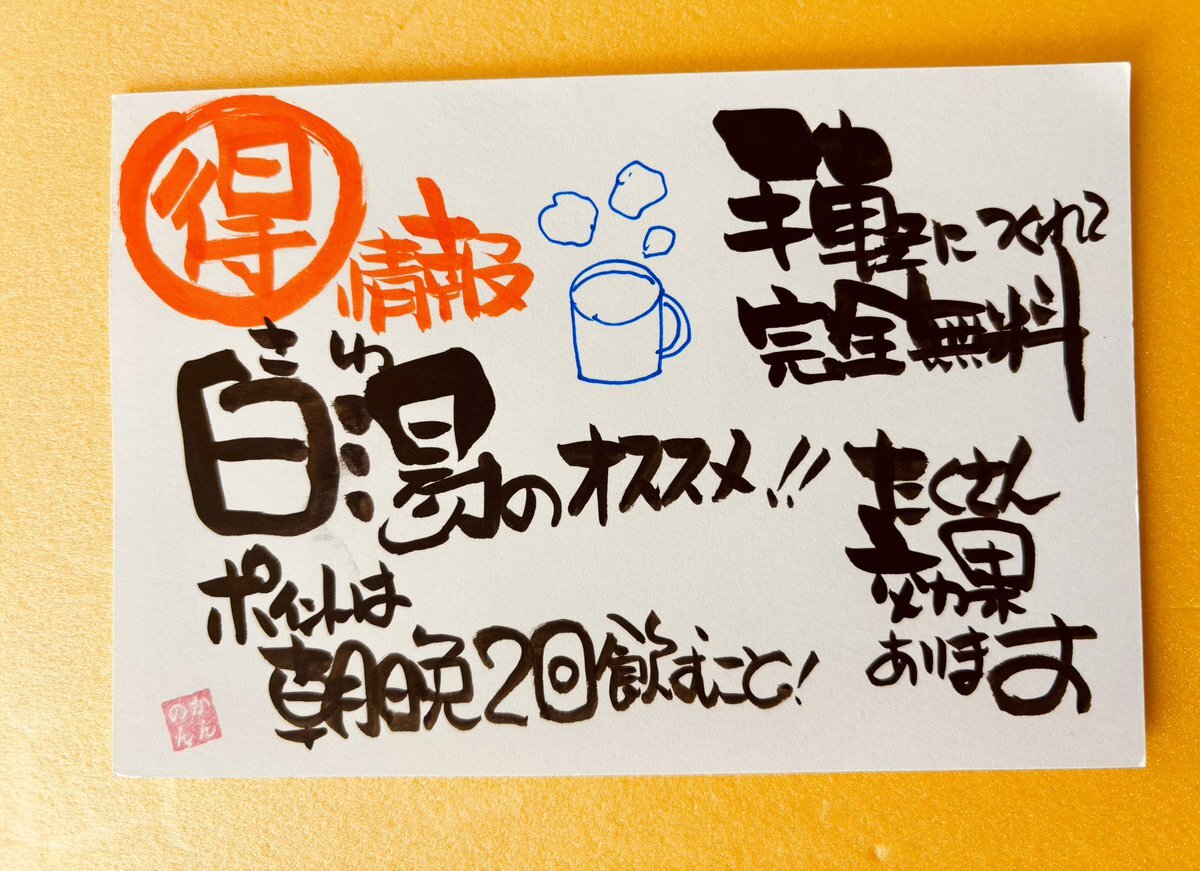 得
情報
手軽につくれて
完全無料
さゆ
白湯のオススメ!!
たくさん
効果
あります
ポイントは
朝晩2回飲むこと!
かんのん